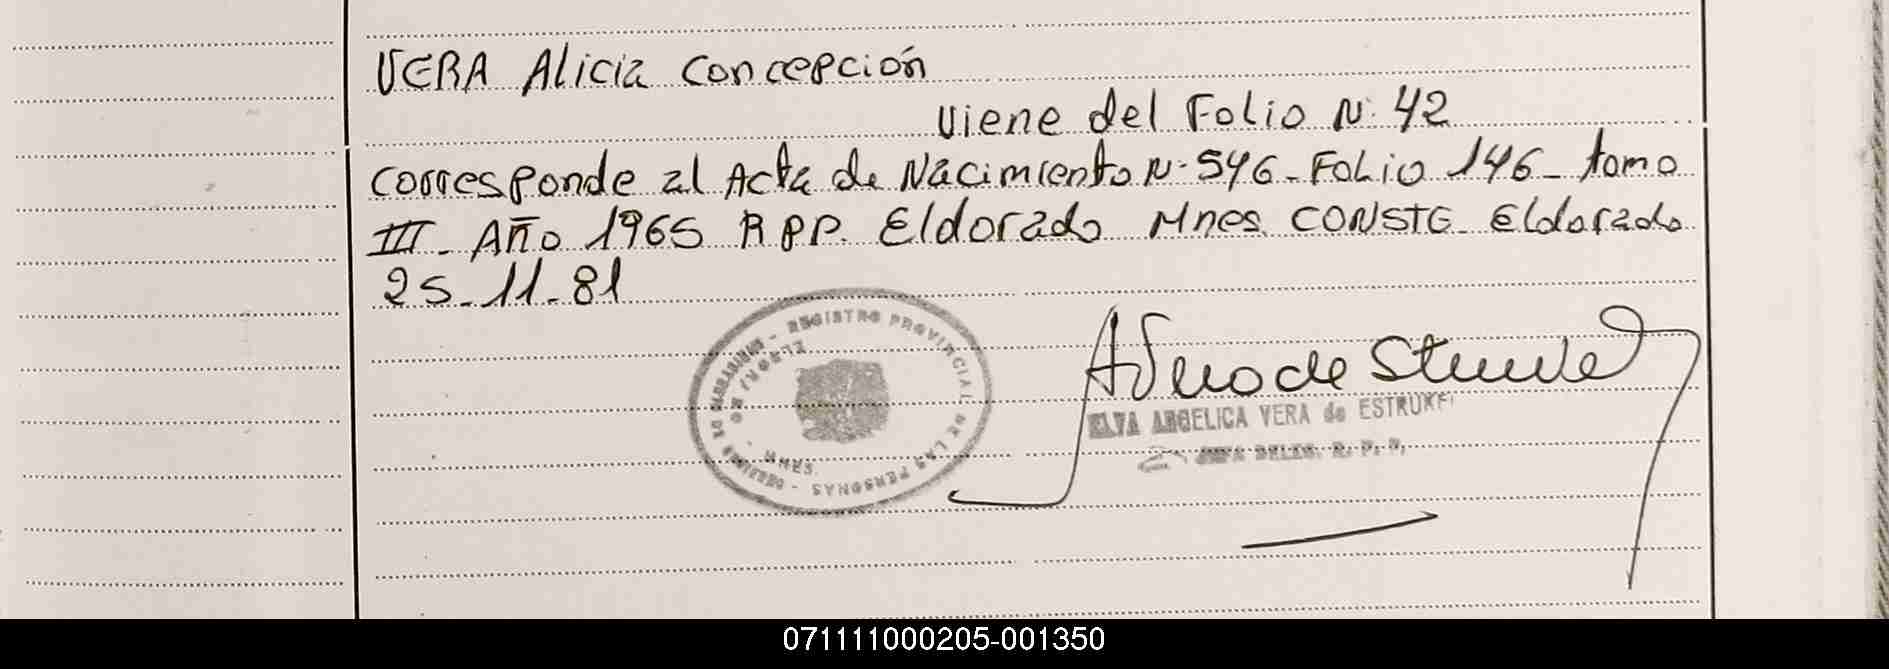 VERA Alicia Concepción
Viene del Folio N. 42
corresponde al Acta de Nacimiento N. 546 - Folio 146 - tomo
III - Año 1965 R.P.P. Eldorado Mnes. CONSTE - Eldorado
25-11-81
REGISTRO PROVINCIAL DE LAS PERSONAS
ELDORADO
MNES.
ELVA ANGELICA VERA de ESTRUKEL
JEFA DELEG. R. P. P.
071111000205-001350